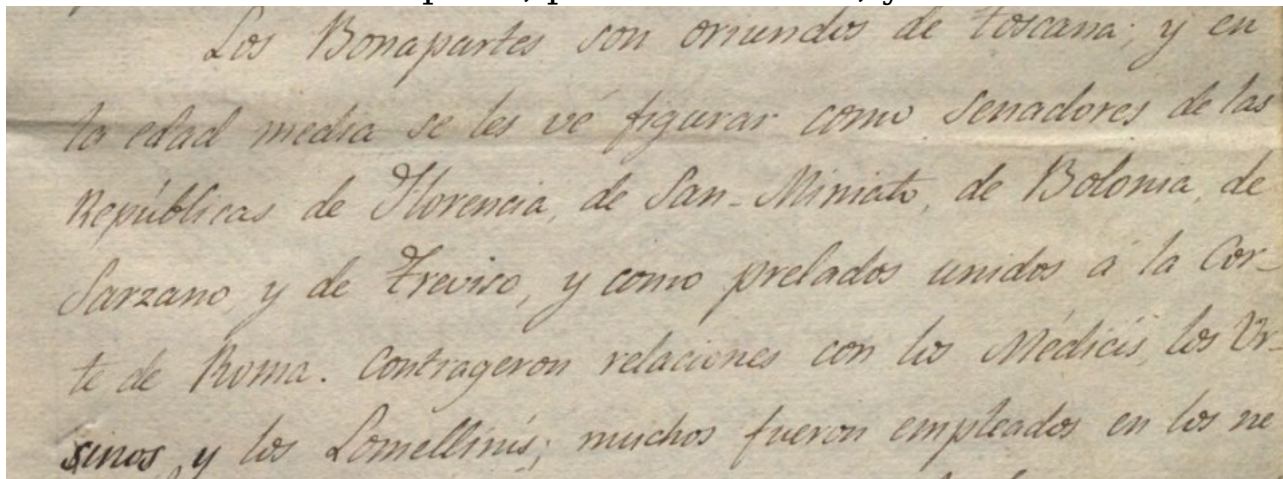 Los Bonapartes son oriundos de Toscana; y en
la edad media se les vé figurar como Senadores de las
Repúblicas de Florencia, de San-Miniato, de Bolonia, de
Sarzano y de Treviso, y como prelados unidos á la Cor-
te de Roma. Contrageron relaciones con los Médicis, los Ur-
sinos y los Lomellinis; muchos fueron empleados en los ne